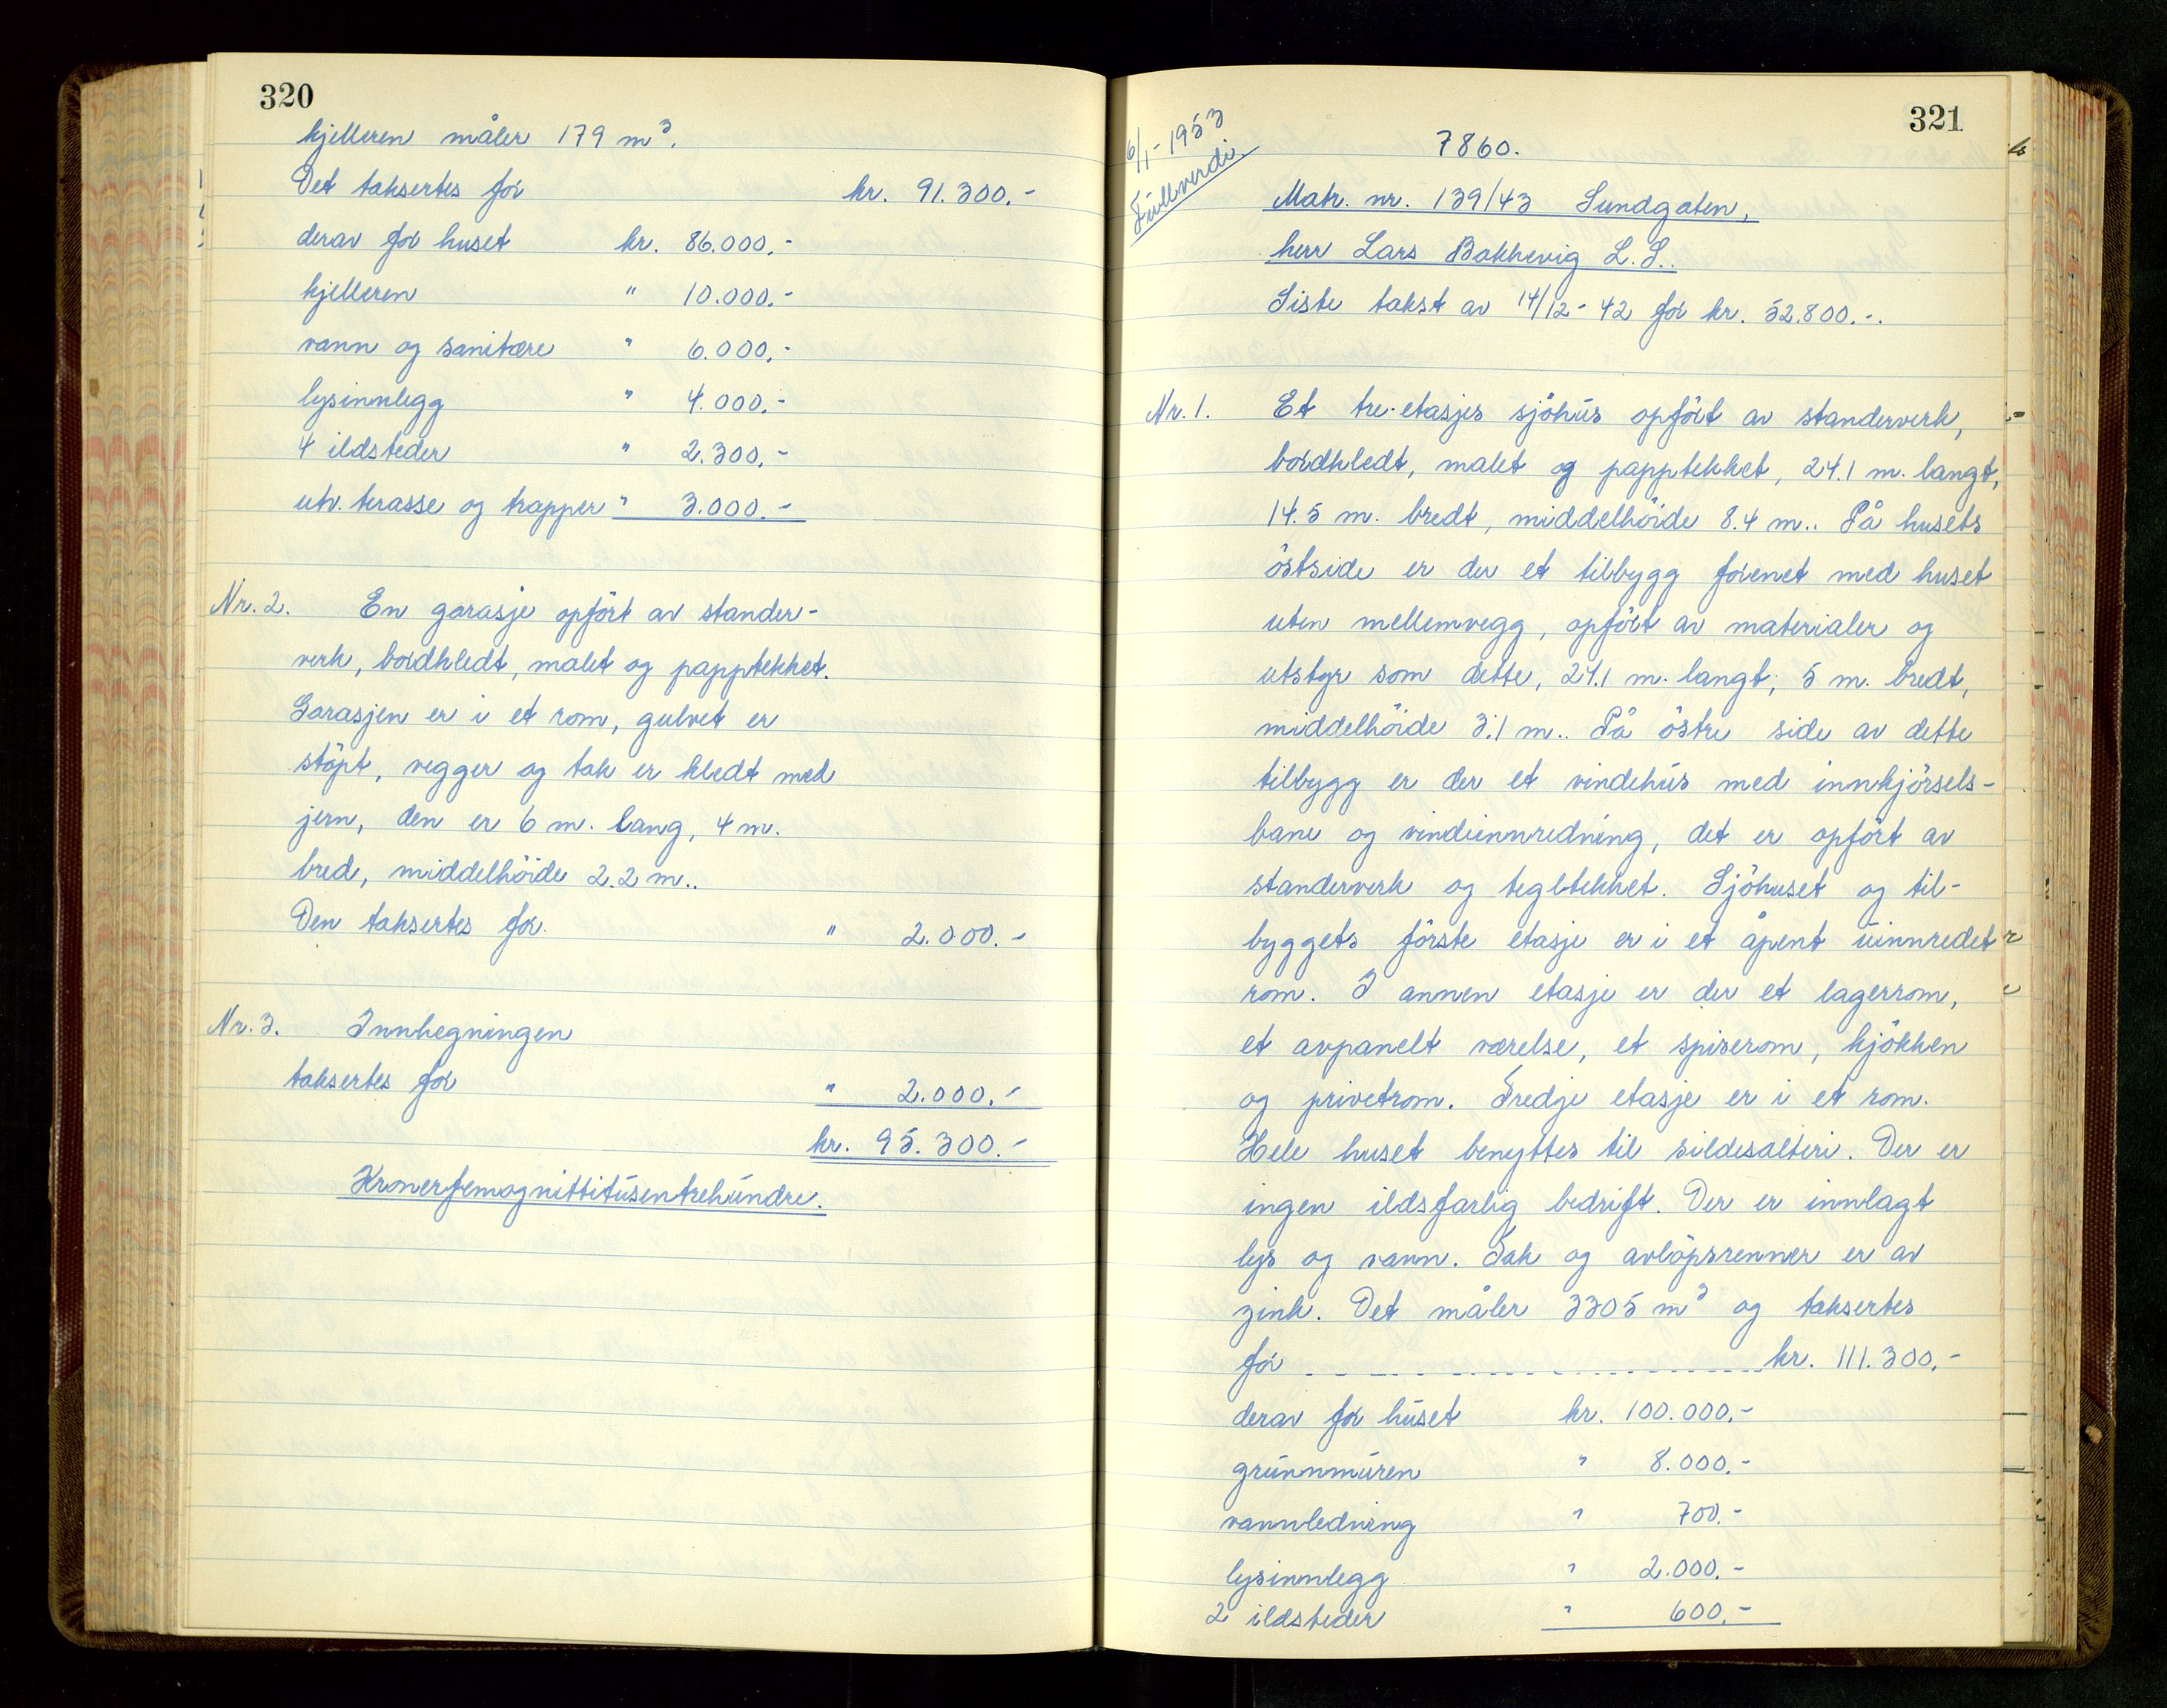 320
kjelleren måler 179 m³.
Det taksertes for kr. 91.300.-
derav for huset kr. 86.000.-
kjelleren " 10.000.-
vann og sanitære " 6.000.-
lysinnlegg " 4.000.-
4 ildsteder " 2.300.-
utv. terasse og trapper " 3.000.-
Nr. 2. En garasje opfört av stander-
verk, bordkledt, malet og papptekket.
Garasjen er i et rom, gulvet er
stöpt, vegger og tak er kledt med
jern, den er 6 m. lang, 4 m.
bred, middelhöide 2.2 m..
Den taksertes for " 2.000.-
Nr. 3. Innhegningen
taksertes for " 2.000.-
kr. 95.300.-
Kronerfemognittitusentrehundre.
321
6/1-1953
Fullverdi
7860.
Matr. nr. 139/43 Sundgaten,
herr Lars Bakkevig L. S..
Siste takst av 14/12-42 for kr. 52.800.-.
Nr. 1. Et tre-etasjes sjöhus opfört av standerverk,
bordkledt, malet og papptekket, 24.1 m. langt,
14.5 m. bredt, middelhöide 8.4 m.. På husets
östside er der et tilbygg forenet med huset
uten mellemvegg, opfört av materialer og
utstyr som dette, 24.1 m. langt, 5 m. bredt,
middelhöide 3.1 m.. På östre side av dette
tilbygg er der et vindehus med innkjörsels-
bane og vindeinnredning, det er opfört av
standerverk og tegltekket. Sjöhuset og til-
byggets förste etasje er i et åpent uinnredet
rom. I annen etasje er der et lagerrom,
et avpanelt værelse, et spiserom, kjökken
og privetrom. Tredje etasje er i et rom.
Hele huset benyttes til sildesalteri. Der er
ingen ildsfarlig bedrift. Der er innlagt
lys og vann. Tak og avlöpsrenner er av
zink. Det måler 3305 m³ og taksertes
for kr. 111.300.-
derav for huset kr. 100.000.-
grunnmuren " 8.000.-
vannledning " 700.-
lysinnlegg " 2.000.-
2 ildsteder " 600.-